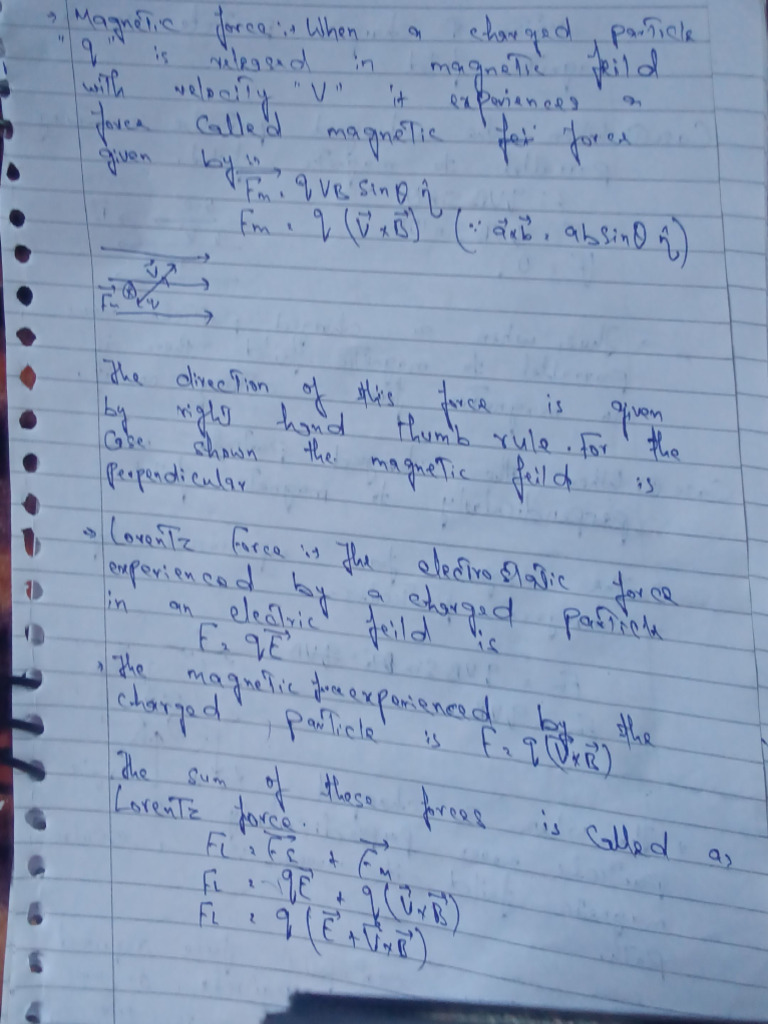 → Magnetic force :→ When a charged particle
"q" is released in magnetic feild
with velocity "V" it experiences a
force called magnetic force
given by :→
Fm = qVB sinθ η̂
Fm = q (V⃗×B⃗) (∵ a⃗×b⃗ = ab sinθ η̂)
V⃗
F⃗ ⊗ q
The direction of this force is given
by right hand thumb rule. For the
case shown the magnetic feild is
perpendicular
→ Lorentz Force :→ The electrostatic force
experienced by a charged particle
in an electric feild is
F = qE⃗
→ The magnetic force experienced by the
charged particle is F = q(V⃗×B⃗)
The sum of these forces is called as
Lorentz force.
FL = F⃗E + F⃗m
FL = qE⃗ + q(V⃗×B⃗)
FL = q(E⃗ + V⃗×B⃗)